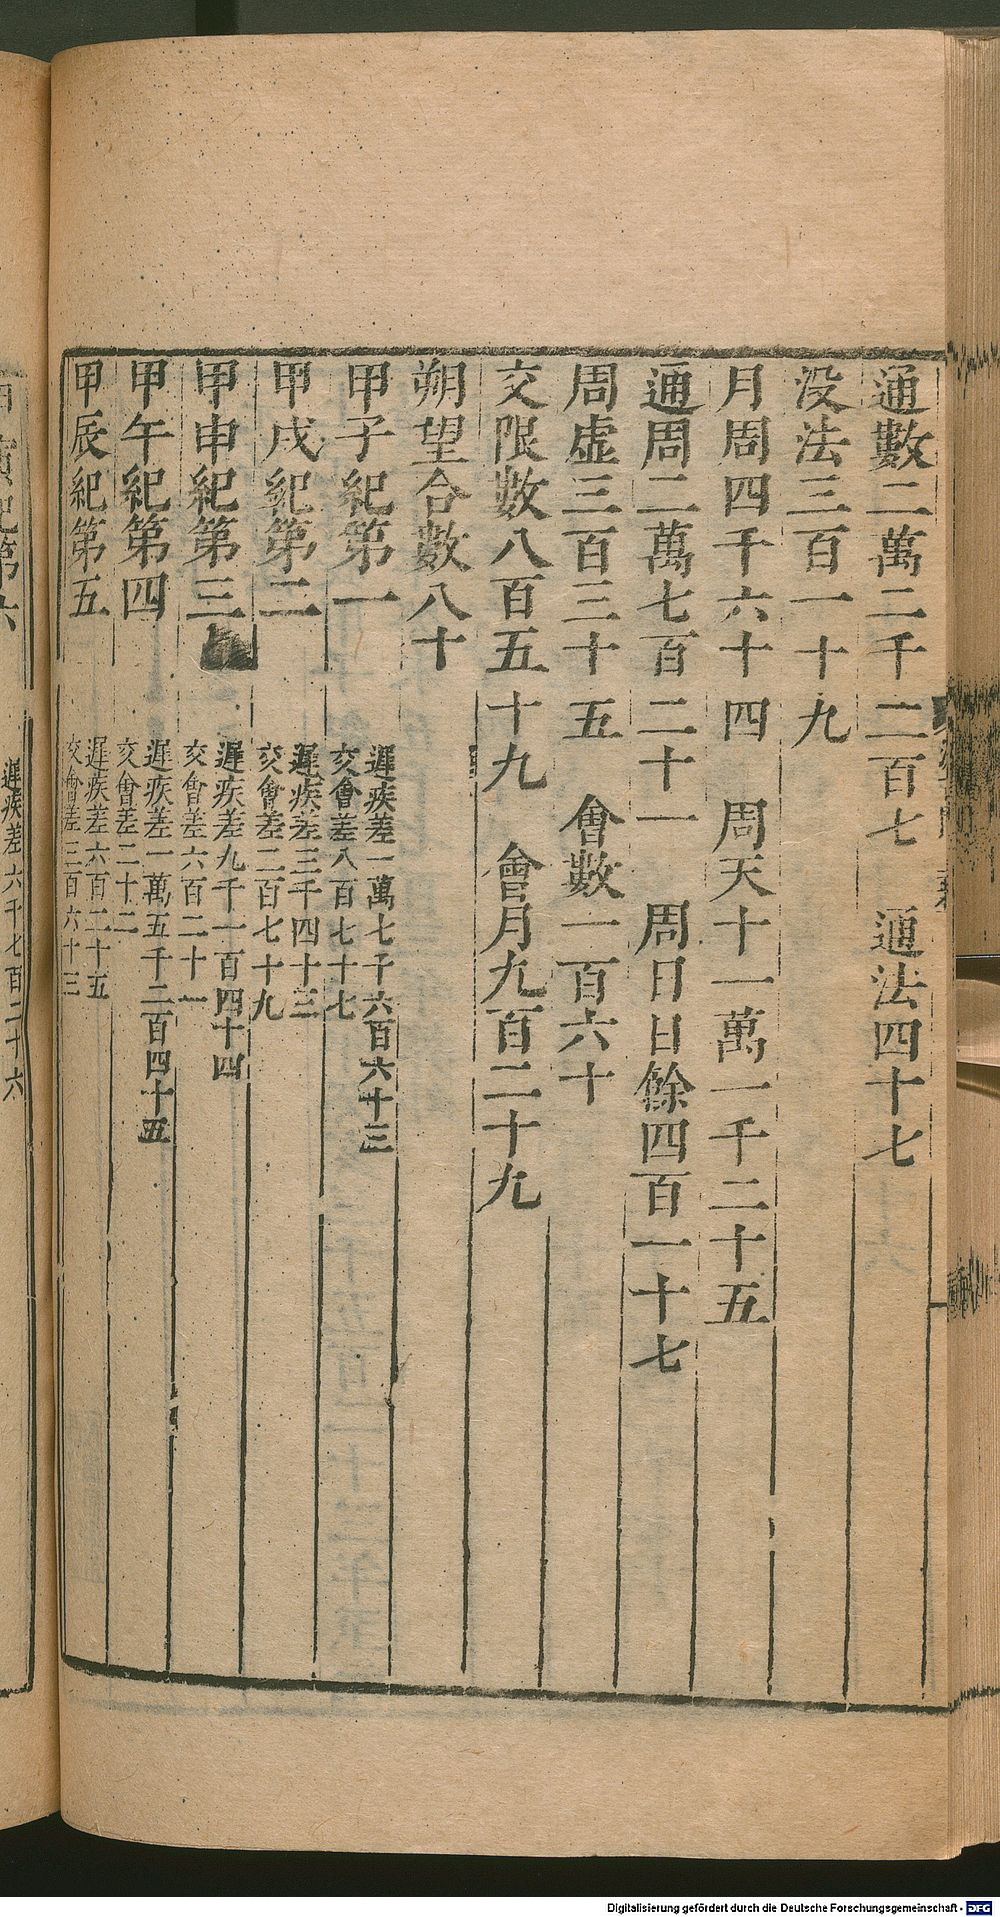 通數二萬二千二百七　通法四十七
没法三百一十九
月周四千六十四　周天十一萬一千二十五
通周二萬七百二十一　周日日餘四百一十七
周虛三百三十五　會數一百六十
交限數八百五十九　會月九百二十九
朔望合數八十
甲子紀第一　遲疾差一萬七千六百六十三
交會差八百七十七
甲戌紀第二　遲疾差三千四十三
交會差二百七十九
甲申紀第三　遲疾差九千一百四十四
交會差六百二十一
甲午紀第四　遲疾差一萬五千二百四十五
交會差二十二
甲辰紀第五　遲疾差六百二十五
交會差三百六十三
紀第六　遲疾差六千七百二十六
Digitalisierung gefördert durch die Deutsche Forschungsgemeinschaft - DFG